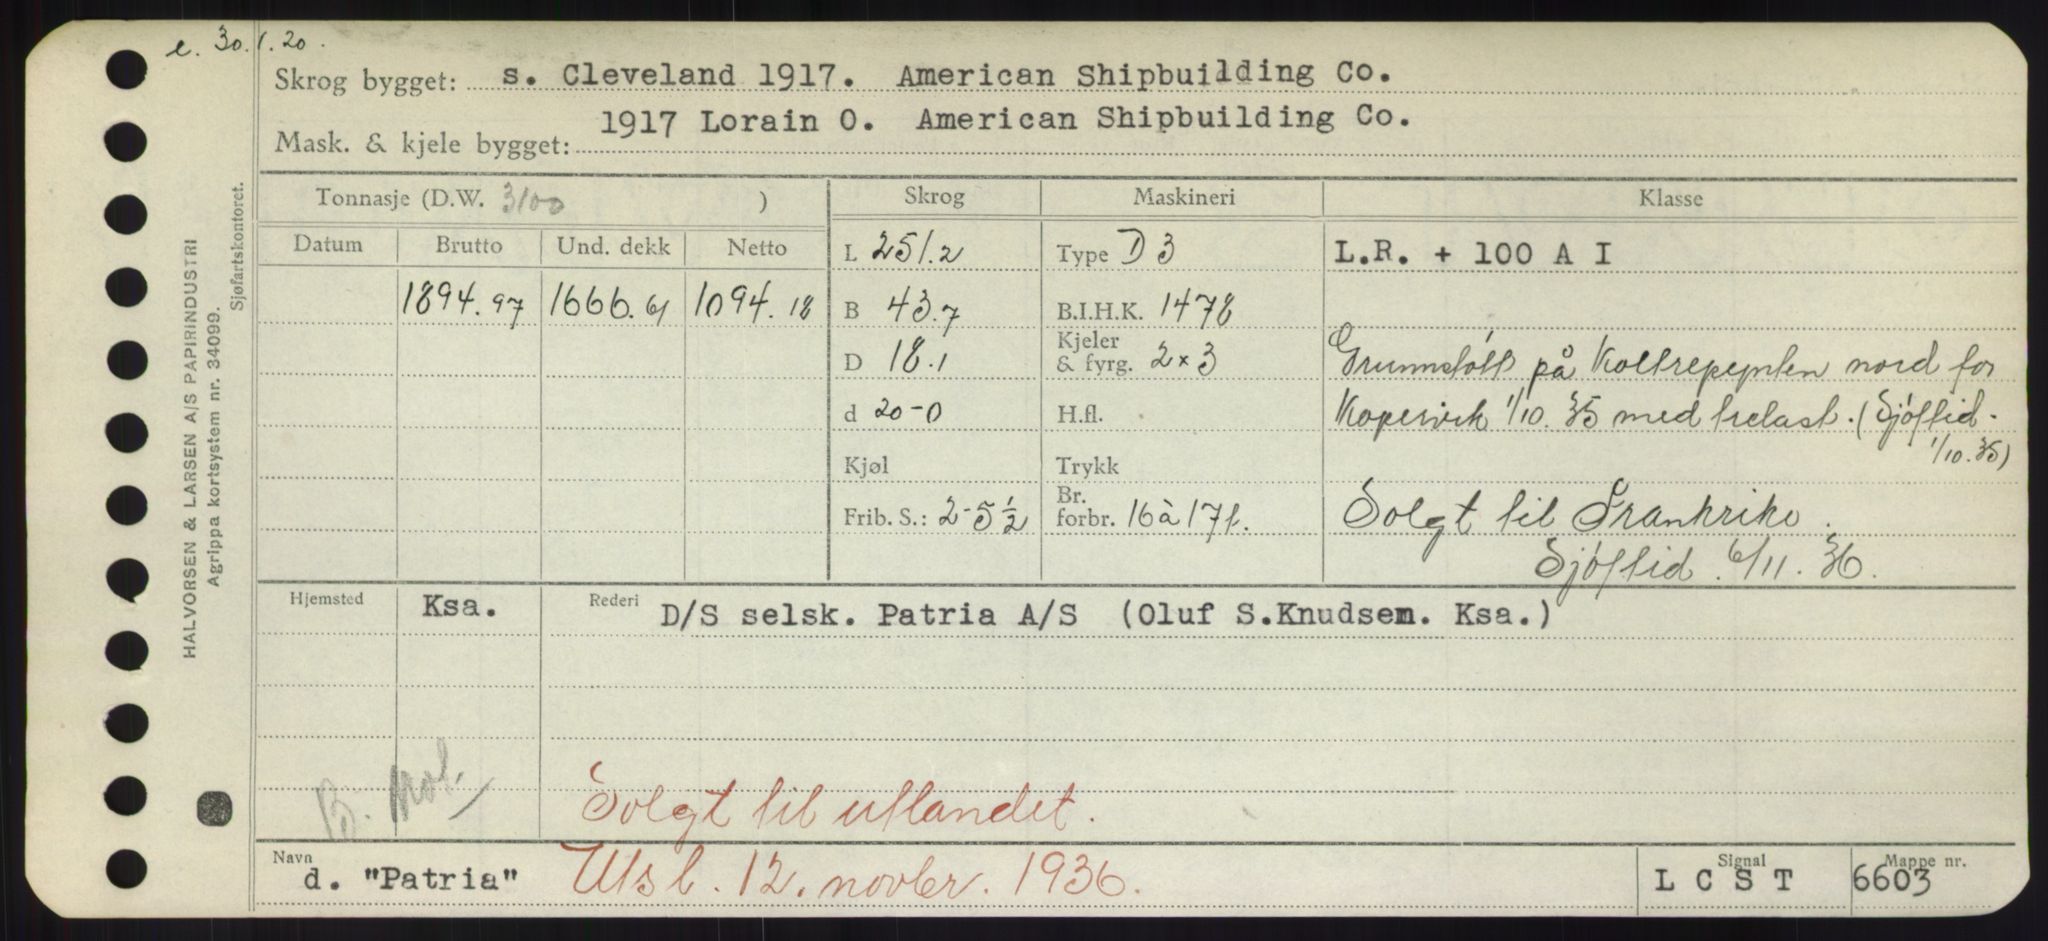 e. 30.1.20.
Skrog bygget: s. Cleveland 1917. American Shipbuilding Co.
Mask. & kjele bygget: 1917 Lorain O. American Shipbuilding Co.
Tonnasje (D.W. 3100 ) Skrog Maskineri Klasse
Datum Brutto Und. dekk Netto L 251.2 Type D 3 L.R. + 100 A I
1894.97 1666.61 1094.18 B 43.7 B.I.H.K. 1478
D 18.1 Kjeler & fyrg. 2 x 3 Grunnstött på nord for
d 20-0 H.fl. Kopervik 1/10.35 med trelast. (Sjöftid.
1/10.35)
Kjøl Trykk
Frib. S.: 2-5 1/2 Br. forbr. 16 à 17 t. Solgt til Frankrike.
Sjöftid. 6/11.36.
Hjemsted Ksa. Rederi D/S selsk. Patria A/S (Oluf S.Knudsen. Ksa.)
B.
Solgt til utlandet.
Navn d. "Patria" Utsl. 12. novbr. 1936. Signal L C S T Mappe nr. 6603
HALVORSEN & LARSEN A/S PAPIRINDUSTRI
Agrippa kortsystem nr. 34099.
Sjøfartskontoret.